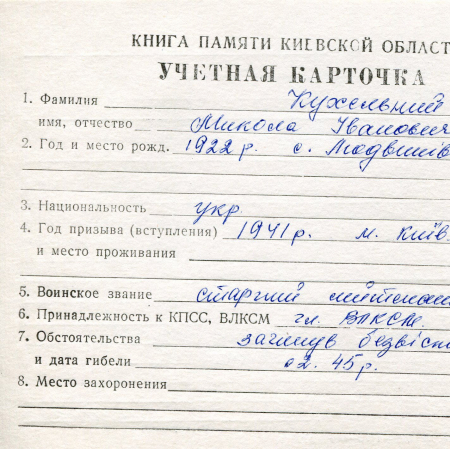 КНИГА ПАМЯТИ КИЕВСКОЙ ОБЛАСТ
УЧЕТНАЯ КАРТОЧКА
1. Фамилия Кухельний
имя, отчество Микола Іванович
2. Год и место рожд. 1922р. с.
3. Национальность укр.
4. Год призыва (вступления) 1941р. м. Київ
и место проживания
5. Воинское звание старший лейтенан
6. Принадлежность к КПСС, ВЛКСМ чл. ВЛКСМ
7. Обстоятельства загинув безвіст
и дата гибели 02.45р.
8. Место захоронения